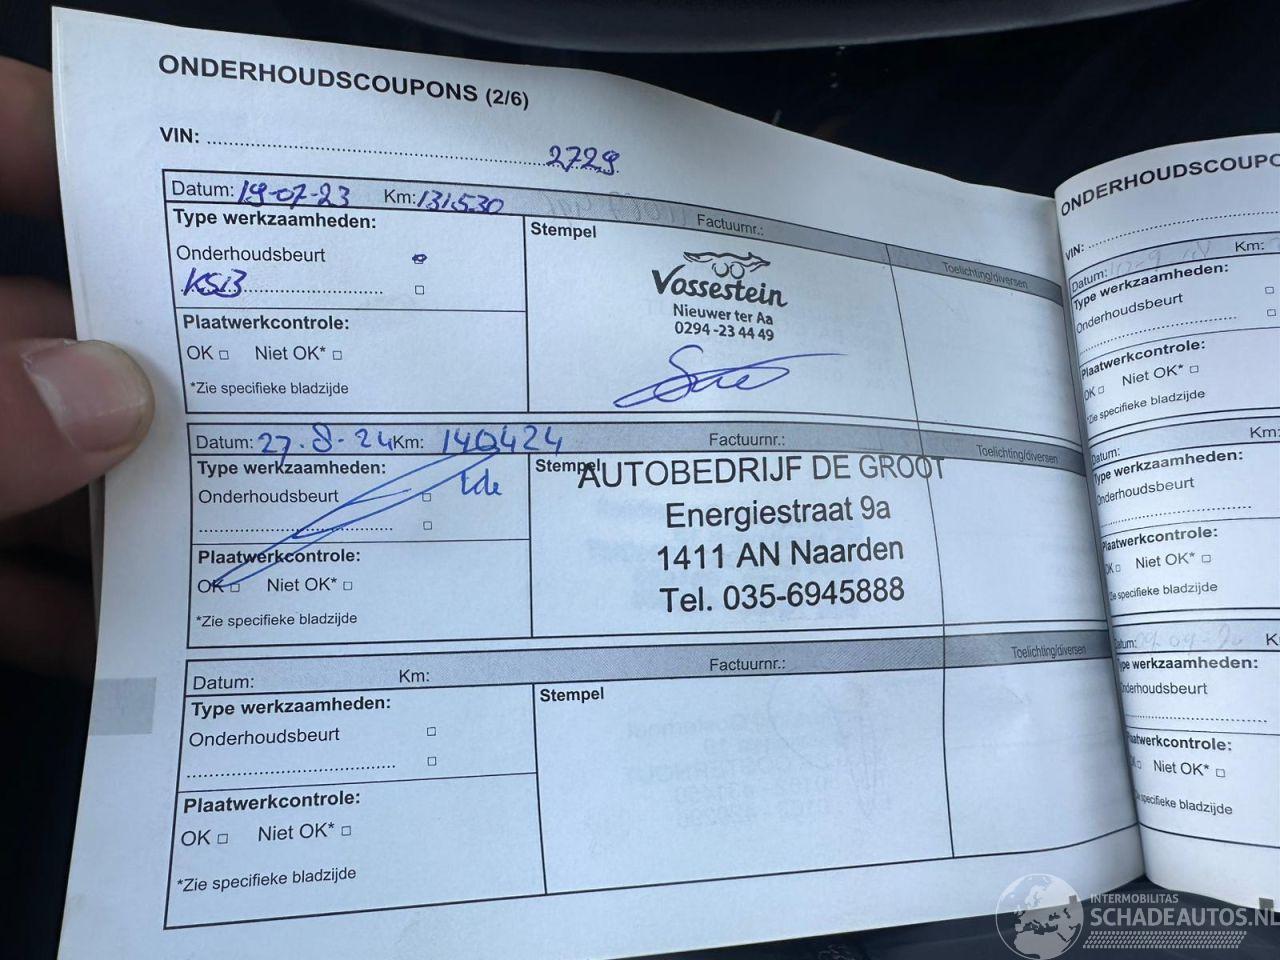 ONDERHOUDSCOUPONS (2/6)
VIN: 2729
Datum: 19-07-23 Km: 131.530 Factuurnr.: Toelichting/diversen
Type werkzaamheden:
Stempel
Onderhoudsbeurt
Vossestein
Nieuwer ter Aa
0294-23 44 49
Plaatwerkcontrole:
OK Niet OK*
*Zie specifieke bladzijde
Datum: 27-8-24 Km: 140424 Factuurnr.: Toelichting/diversen
Type werkzaamheden:
Stempel
Onderhoudsbeurt
AUTOBEDRIJF DE GROOT
Energiestraat 9a
1411 AN Naarden
Tel. 035-6945888
Plaatwerkcontrole:
OK Niet OK*
*Zie specifieke bladzijde
Datum: Km: Factuurnr.: Toelichting/diversen
Type werkzaamheden:
Stempel
Onderhoudsbeurt
Plaatwerkcontrole:
OK Niet OK*
*Zie specifieke bladzijde
ONDERHOUDSCOUPO
VIN:
Datum: Km:
Type werkzaamheden:
Onderhoudsbeurt
Plaatwerkcontrole:
OK Niet OK*
*Zie specifieke bladzijde
Datum: Km:
Type werkzaamheden:
Onderhoudsbeurt
Plaatwerkcontrole:
OK Niet OK*
*Zie specifieke bladzijde
Datum: K
Type werkzaamheden:
Onderhoudsbeurt
Plaatwerkcontrole:
OK Niet OK*
*Zie specifieke bladzijde
INTERMOBILITAS
SCHADEAUTOS.NL